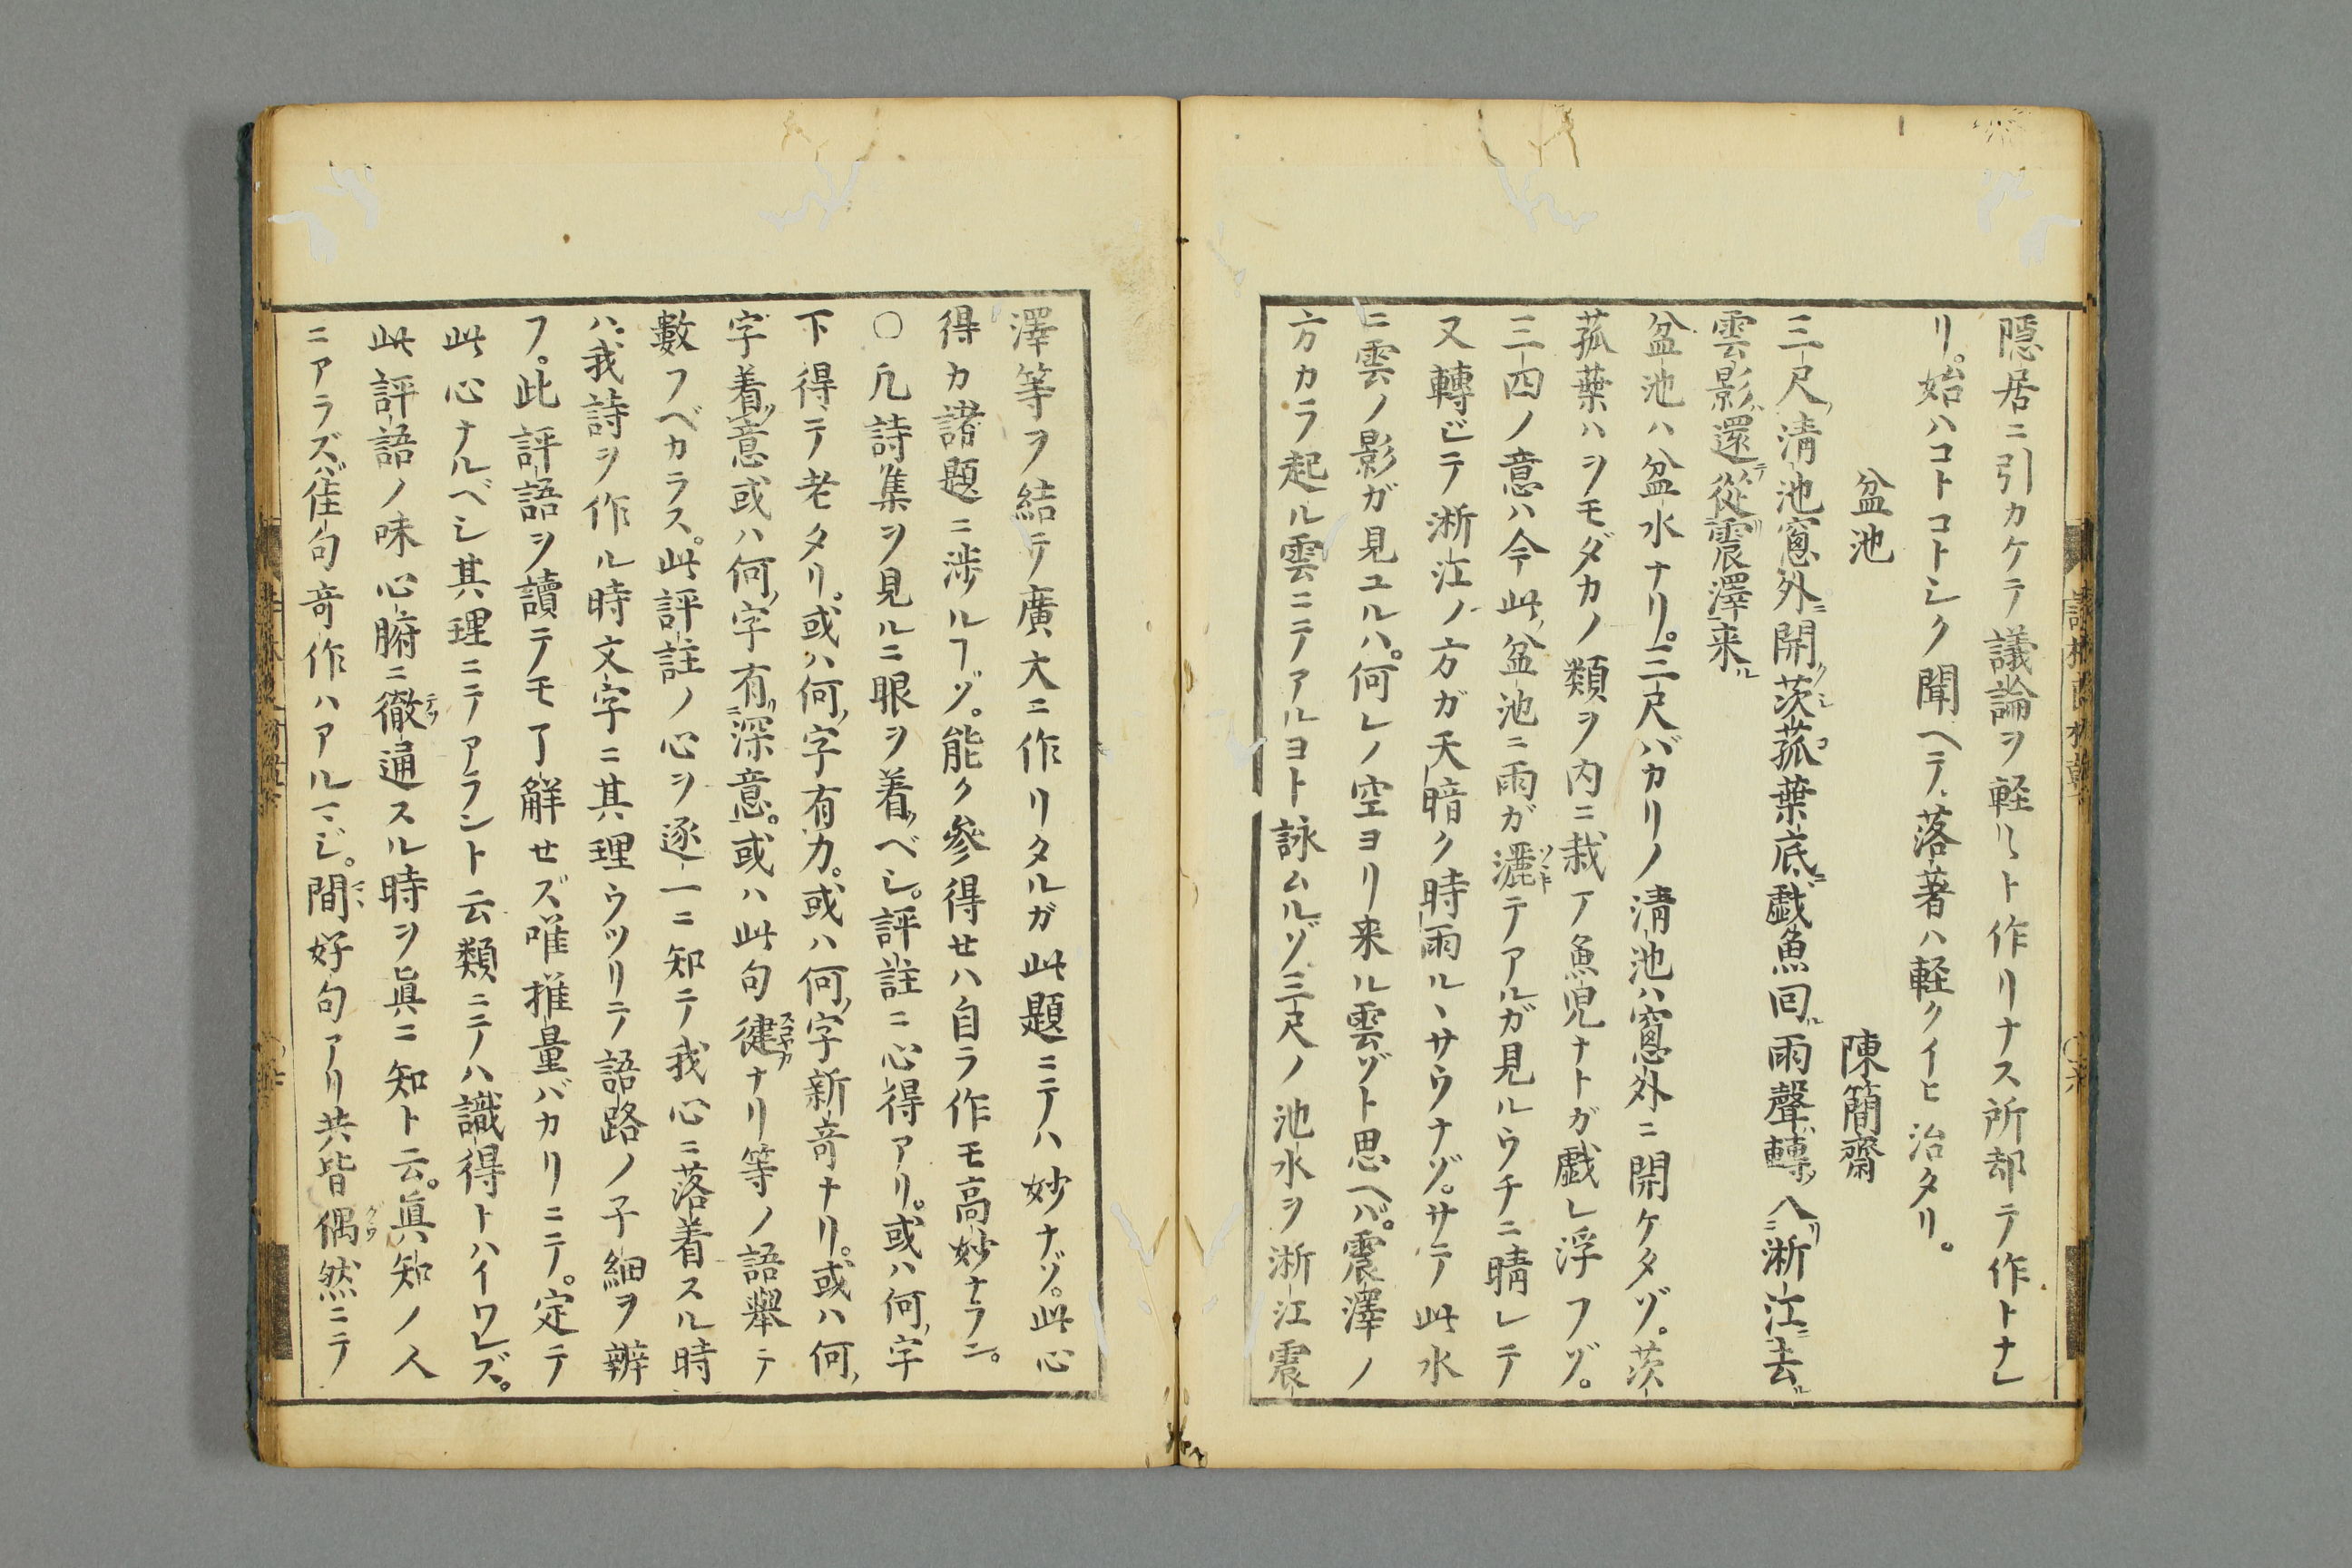 隠居ニ引カケテ議論ヲ軽〱ト作リナス所却テ作トナレ
リ。始ハコトコトシク聞ヘテ落著ハ軽クイヒ治タリ。
盆池
陳簡齋
三尺清池窓外開茨菰葉底戯魚回雨聲轉入淅江去
雲影還從震澤来
盆池ハ盆水ナリ。三尺バカリノ清池ハ窓外ニ開ケタゾ。茨
菰葉ハヲモダカノ類ヲ内ニ栽テ魚児ナトガ戯レ浮フゾ。
三四ノ意ハ今此盆池ニ雨ガ灑テアルガ見ルウチニ晴レテ
又轉ジテ淅江ノ方ガ天暗ク時雨ルヽサウナゾ。サテ此水
ニ雲ノ影ガ見ユルハ。何レノ空ヨリ来ル雲ゾト思ヘバ。震澤ノ
方カラ起ル雲ニテアルヨト詠ムルゾ三尺ノ池水ヲ淅江震
澤等ヲ結テ廣大ニ作リタルガ此題ニテハ妙ナゾ。此心
得カ諸題ニ渉ルヿゾ。能ク參得セハ自ラ作モ高妙ナラン。
〇凢詩集ヲ見ルニ眼ヲ着ベシ。評註ニ心得アリ。或ハ何字
下得テ老タリ。或ハ何字有力。或ハ何字新竒ナリ。或ハ何
字着意或ハ何字有深意。或ハ此句健ナリ等ノ語舉テ
數フベカラス。此評註ノ心ヲ逐一ニ知テ我心ニ落着スル時
ハ。我詩ヲ作ル時文字ニ其理ウツリテ語路ノ子細ヲ辨
フ。此評語ヲ讀テモ了觧セズ唯推量バカリニテ。定テ
此心ナルベシ其理ニテアラント云類ニテハ識得トハイワレズ。
此評語ノ味心腑ニ徹通スル時ヲ眞ニ知ト云。眞知ノ人
ニアラズバ佳句竒作ハアルマジ。間好句アリ共皆偶然ニテ